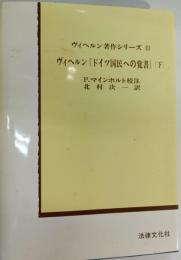 ヴィヘルン著作シリーズ Ⅲ
ヴィヘルン「ドイツ国民への覚書」〔下〕
P.マインホルト校注
北村次一訳
法律文化社